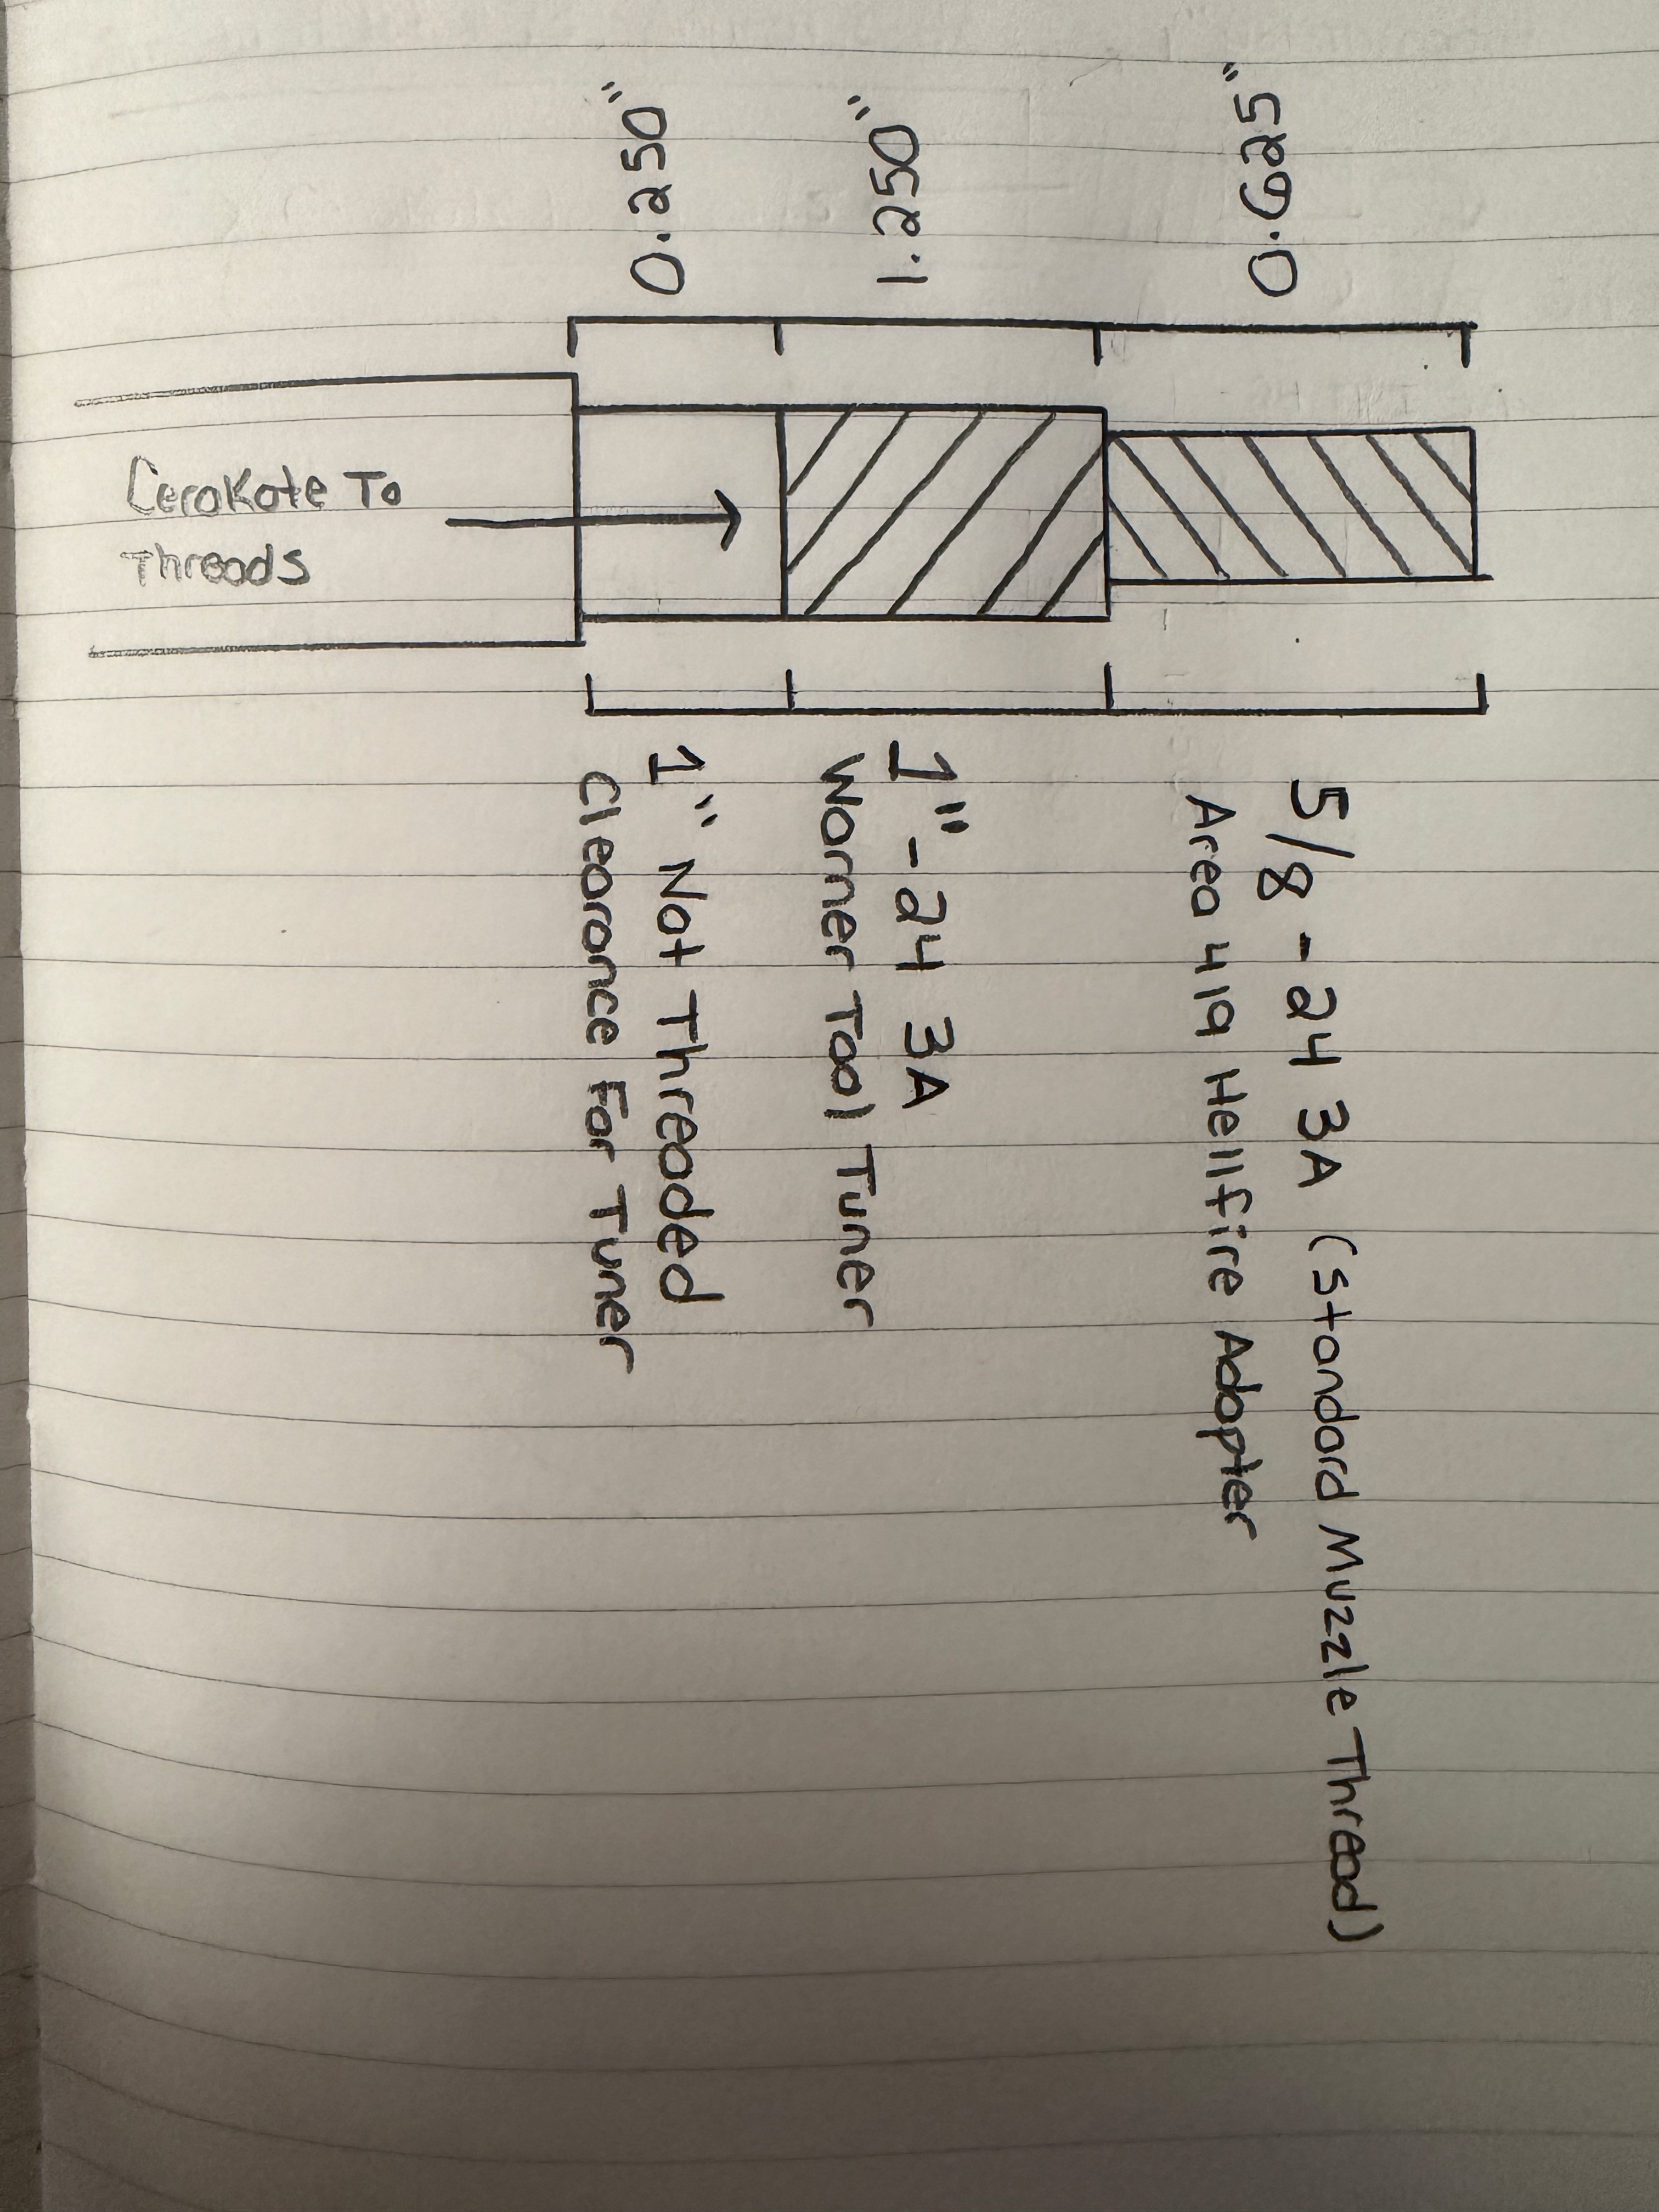 0.250"
1.250"
0.625"
Cerakote To
Threads
1" Not Threaded
Clearance For Tuner
1"-24 3A
Warner Tool Tuner
5/8 -24 3A (Standard Muzzle Thread)
Area 419 Hellfire Adapter